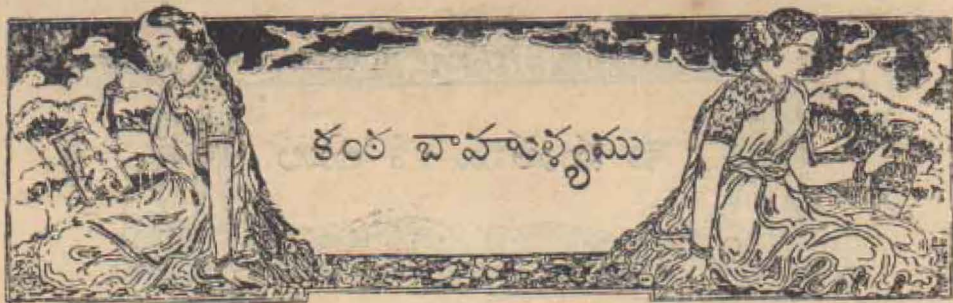 కంఠ బాహుళ్యము